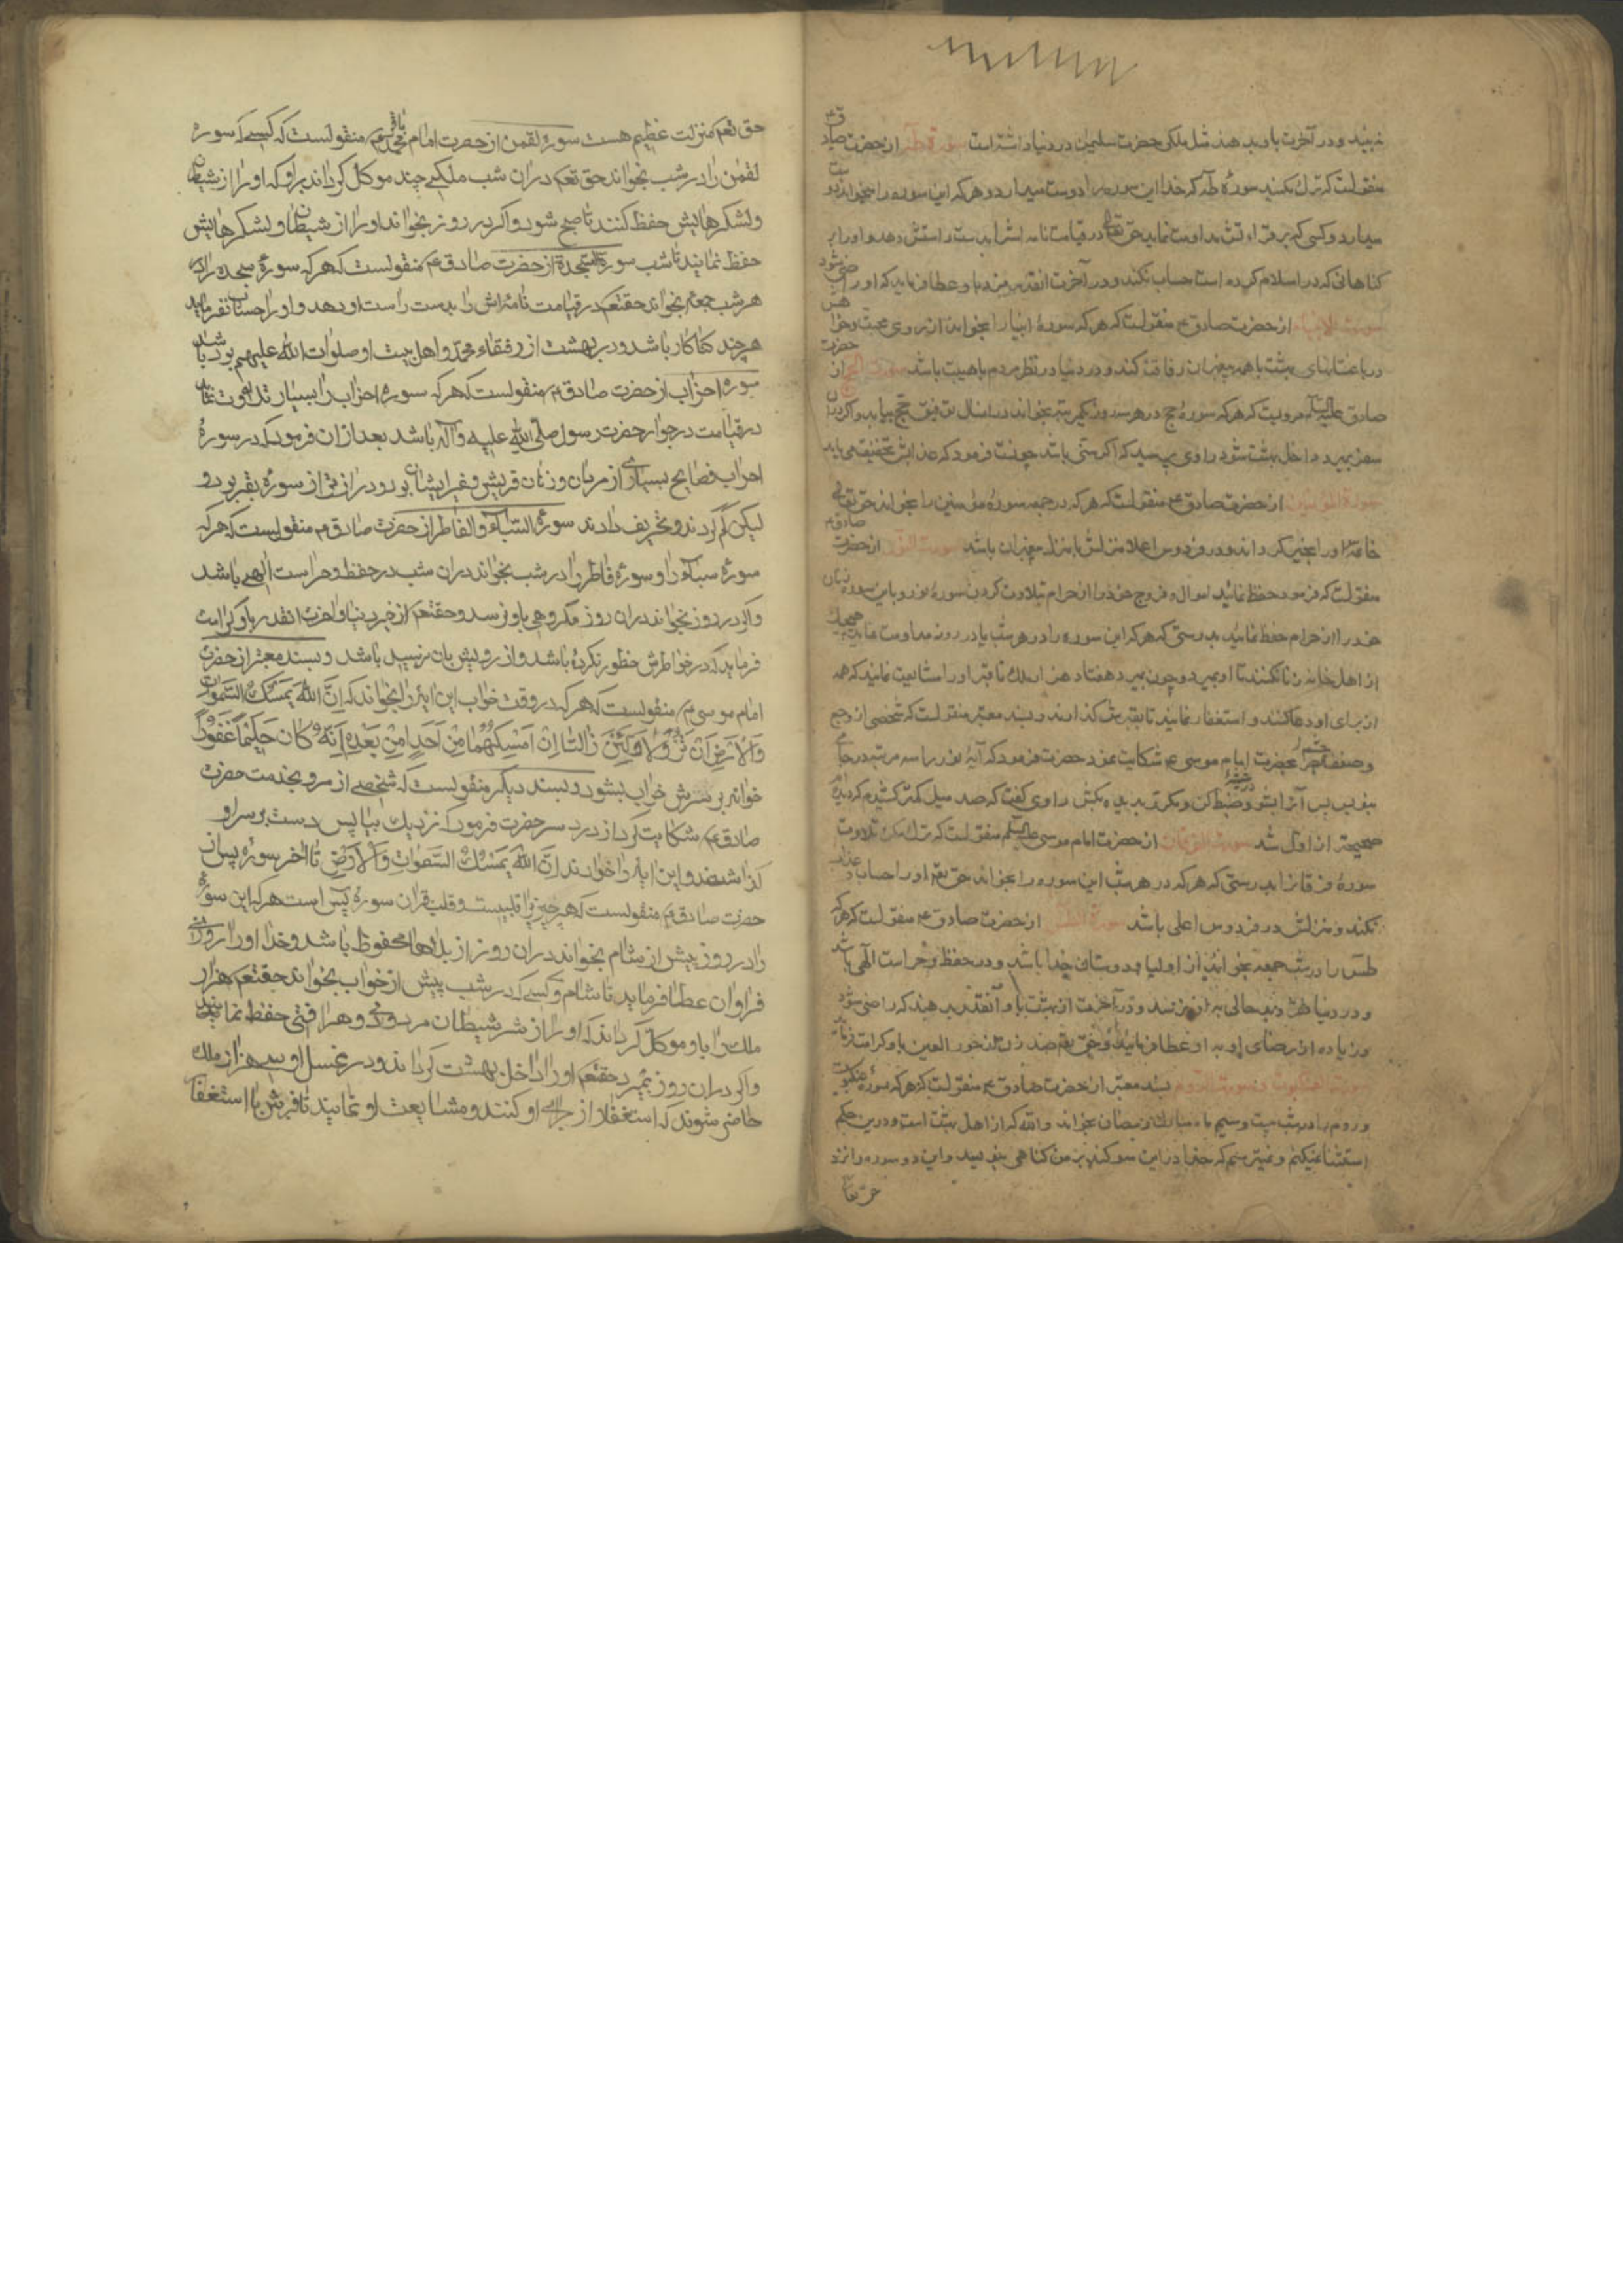 نبیند و در آخرت باو بدهند مثل ملکی حضرت سلیمن در دنیا داشته است سورة طه از حضرت صادق ع
منقولست که ترک مکنید سورهٔ طه که خدا این سوره را دوست میدارد و هرکه این سوره را بخواند دوست
میدارد و کسی که بر قراءتش مداومت نماید حق تعالی در قیامت نامه اش را بدست راستش دهد و او را بر
کناهانی که در اسلام کرده است حساب نکند و در آخرت انقدر مزد باو عطا فرماید که او راضی شود
سورت الانبیاء از حضرت صادق ع منقولست که هرکه سورهٔ انبیا را بخواند از روی محبت و خواهش
در باغستانهای بهشت با همه پیغمبران رفاقت کند و در دنیا در نظر مردم باهیبت باشد سورت الحج از حضرت
صادق علیه السلام مرویست که هرکه سورهٔ حج در هر سه روز یکمرتبه بخواند در انسال توفیق حج بیابد و اکر در ان
سفر بمیرد داخل بهشت شود راوی پرسید که اکر سنی باشد چونست فرمود که عذابش تخفیف می یابد
سورة المؤمنین از حضرت صادق ع منقولست که هرکه در جمعه سورهٔ مؤمنین را بخواند حق تعالی
خاتمهٔ او را بخیر کرداند و در فردوس اعلا منزلش با منزل پیغمبران باشد سورت النور از حضرت صادق ع
منقولست که فرمود حفظ نمائید اموال و فروج خود را از حرام بتلاوت کردن سورهٔ نور و باین سوره زنان
خود را از حرام حفظ نمائید بدرستی که هرکه این سوره را در هر شب یا در روز مداومت نماید هیچیک
از اهل خانه اش زنا نکنند تا او بمیرد و چون بمیرد هفتاد هزار ملک تا قبر او را مشایعت نمایند که همه
از برای او دعا کنند و استغفار نمایند تا بقبرش کذارند و بسند معتبر منقولست که شخصی از وجع
و ضعف چشم بحضرت امام موسی ع شکایت نمود حضرت فرمود که آیهٔ نور را سه مرتبه در جامی
بنویس پس آنرا بشو و در شیشه ضبط کن و مکرر بدیده بکش راوی کفت که صد میل کمتر کشیدم که دیده ام
صحیحتر از اول شد سورت الفرقان از حضرت امام موسی علیه السلم منقولست که ترک مکن تلاوت
سورهٔ فرقان را بدرستی که هرکه در هر شب این سوره را بخواند حق تعالی او را حساب و عذاب
نکند و منزلش در فردوس اعلی باشد سورة الطس از حضرت صادق ع منقولست که هرکه
طس را در شب جمعه بخواند از اولیا و دوستان خدا باشد و در حفظ و حراست الهی باشد
و در دنیا هرگز بدحالی باو نرسد و در آخرت از بهشت باو آنقدر بدهند که راضی شود
و زیاده از رضای او باو عطا فرمایند و حق تعالی صد زن از حور العین باو کرامت فرماید
سورت عنکبوت و سورت الروم بسند معتبر از حضرت صادق ع منقولست که هرکه سورهٔ عنکبوت
و روم را در شب بیست و سیم ماه مبارک رمضان بخواند والله که از اهل بهشت است و درین حکم
استثنا نمیکنم و نمیترسم که خدا در این سوکند بر من کناهی بنویسد و این دو سوره را نزد
حق تعا
حق تعم منزلت عظیم هست سورهٔ لقمن از حضرت امام محمد باقر ع منقولست که کسی که سوره
لقمن را در شب بخواند حق تعم در ان شب ملکی چند موکل کرداند براو که او را از شیطان
ولشکرهایش حفظ کنند تا صبح شود و اکر در روز بخواند او را از شیطان و لشکرهایش
حفظ نمایند تا شب سورة السجدة از حضرت صادق ع منقولست که هرکه سورهٔ سجده را در
هر شب جمعه بخواند حقتعم در قیامت نامه اش را بدست راست او دهد و او را حساب نفرماید
هرچند کناهکار باشد و در بهشت از رفقاء محمد و اهل بیت او صلوات الله علیهم بوده باشد
سوره احزاب از حضرت صادق م منقولست که هرکه سوره احزاب را بسیار تلاوت نماید
در قیامت در جوار حضرت رسول صلی الله علیه و آله باشد بعد از ان فرمود که در سورهٔ
احزاب فضایح بسیاری از مردان و زنان قریش و غیر ایشان بود و دراز تر از سورهٔ بقره بود
لیکن کم کردند و تحریف دادند سورة السباء و الفاطر از حضرت صادق م منقولست که هرکه
سورهٔ سباء را و سورهٔ فاطر را در شب بخواند در ان شب در حفظ و حراست الهی باشد
و اکر در روز بخواند در ان روز مکروهی باو نرسد و حقتعم از خیر دنیا و اخرت انقدر باو کرامت
فرماید که در خواطرش خطور نکرده باشد و ارزویش بان نرسیده باشد و بسند معتبر از حضرت
امام موسی م منقولست که هرکه در وقت خواب این ایه را بخواند که اِنَّ اللّٰهَ یُمْسِکُ السَّمٰوٰاتِ
وَالْاَرْضَ اَنْ تَزُوْلَا وَلَئِنْ زٰالَتٰا اِنْ اَمْسَکَهُمٰا مِنْ اَحَدٍ مِنْ بَعْدِهٖ اِنَّهُ کَانَ حَلِیْمًا غَفُوْرًا
خوانه بر سرش خراب نشود و بسند دیکر منقولست که شخصی از مرو بخدمت حضرت
صادق م شکایت کرد از درد سر حضرت فرمود که نزدیک بیا پس دست بر سر او
کذاشتند و این ایه را خواندند اِنَّ اللّٰهَ یُمْسِکُ السَّمٰوٰاتِ وَالْاَرْضَ تا اخر سوره یس از
حضرت صادق م منقولست که هر چیز را قلبیست و قلب قران سورهٔ یس است هرکه این سوره
را در روز پیش از شام بخواند در ان روز از بلاها محفوظ باشد و خدا او را روزی
فراوان عطا فرماید تا شام و کسی که در شب پیش از خواب بخواند حقتعم هزار
ملک را باو موکل کرداند که او را از شر شیطان مردود و هر افتی حفظ نمایند
و اکر در ان روز بمیرد حقتعم او را داخل بهشت کرداند و در غسل او سی هزار ملک
حاضر شوند که استغفار از برای او کنند و مشایعت او نمایند تا قبرش با استغفار